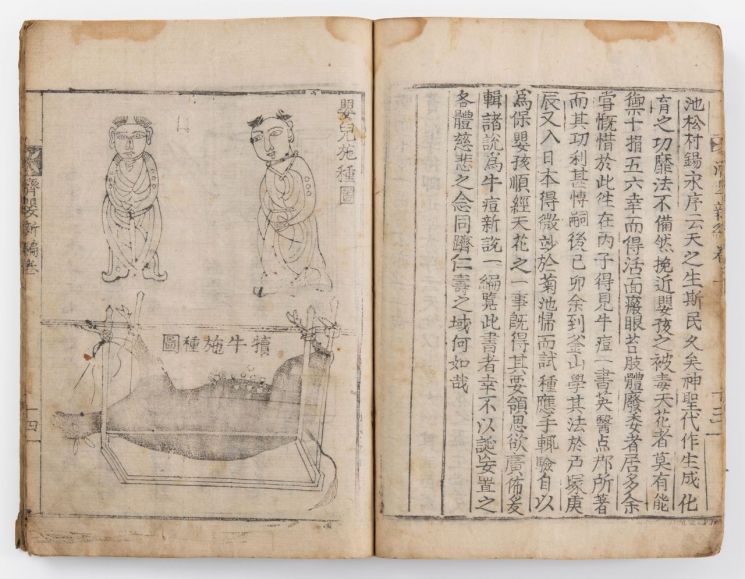 池松村錫永序云天之生斯民久矣神聖代作生成化
育之功靡法不備然挽近嬰孩之被毒天花者莫有能
禦十指五六幸而得活面廢眼苔肢體廢委者居多余
甞慨惜於此徃在丙子得見牛痘一書英醫占那所著
而其功利甚博嗣後己卯余到釜山學其法於戸塚庚
辰又入日本得微玅於菊池歸而試種應手輒驗自以
爲保嬰孩順經天花之一事旣得其要領思欲廣佈爰
輯諸說爲牛痘新說一編覽此書者幸不以誕妄置之
各體慈悲之念同躋仁壽之域何如哉
嬰兒施種圖
犢牛施種圖
濟嬰新編
十四